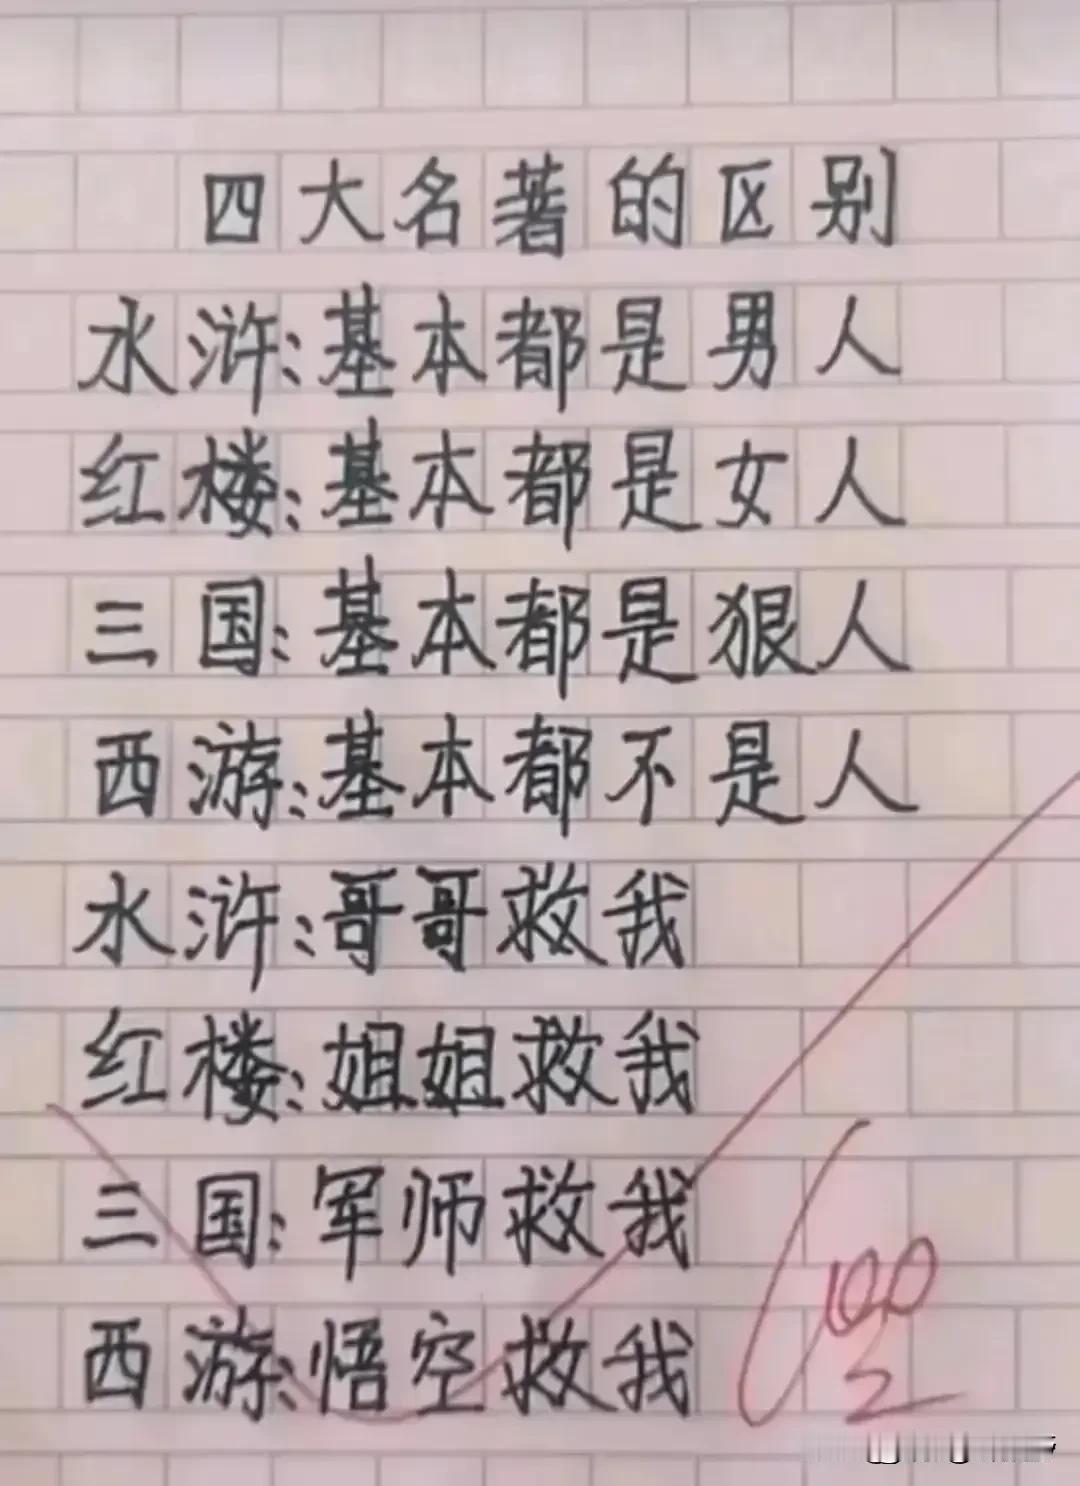 四大名著的区别
水浒:基本都是男人
红楼:基本都是女人
三国:基本都是狠人
西游:基本都不是人
水浒:哥哥救我
红楼:姐姐救我
三国:军师救我
西游:悟空救我
100